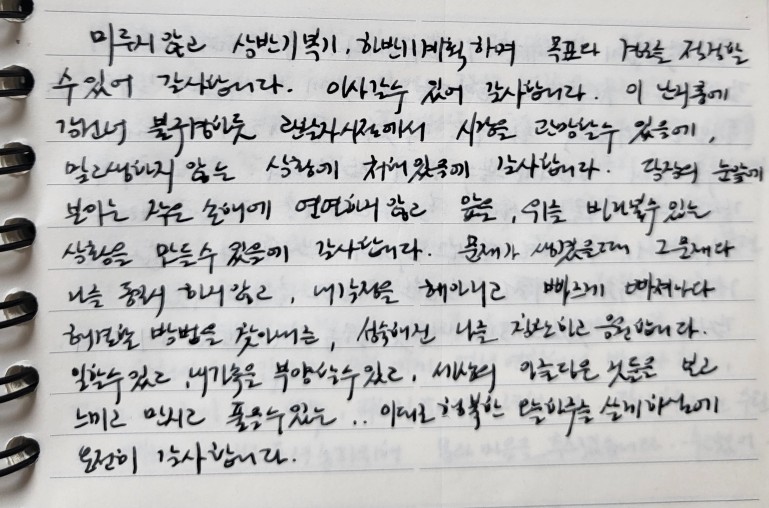 미루지 않고 상반기 복기, 하반기 계획하여 목표와 결심을 점검할
수 있어 감사합니다. 이사갈수 있어 감사합니다. 이 난리통에
강건너 불구경하듯 관찰자시점에서 시장을 관망할수 있음에,
밀고생하지 않는 상황에 처해있음에 감사합니다. 당장의 눈앞에
보이는 작은 손해에 연연하지 않고 앞을, 위를 바라볼수 있는
상황을 만들수 있음에 감사합니다. 문제가 생겼을때 그 문제와
나를 동일시 하지 않고, 내감정을 헤아리고 빠르게 빠져나와
해결할 방법을 찾아내는, 성숙해진 나를 칭찬하고 응원합니다.
일할수 있고, 내가족을 부양할수 있고, 세상의 아름다운 것들을 보고
느끼고 만지고 품을수 있는.. 이대로 행복한 오늘하루를 살게하심에
온전히 감사합니다.